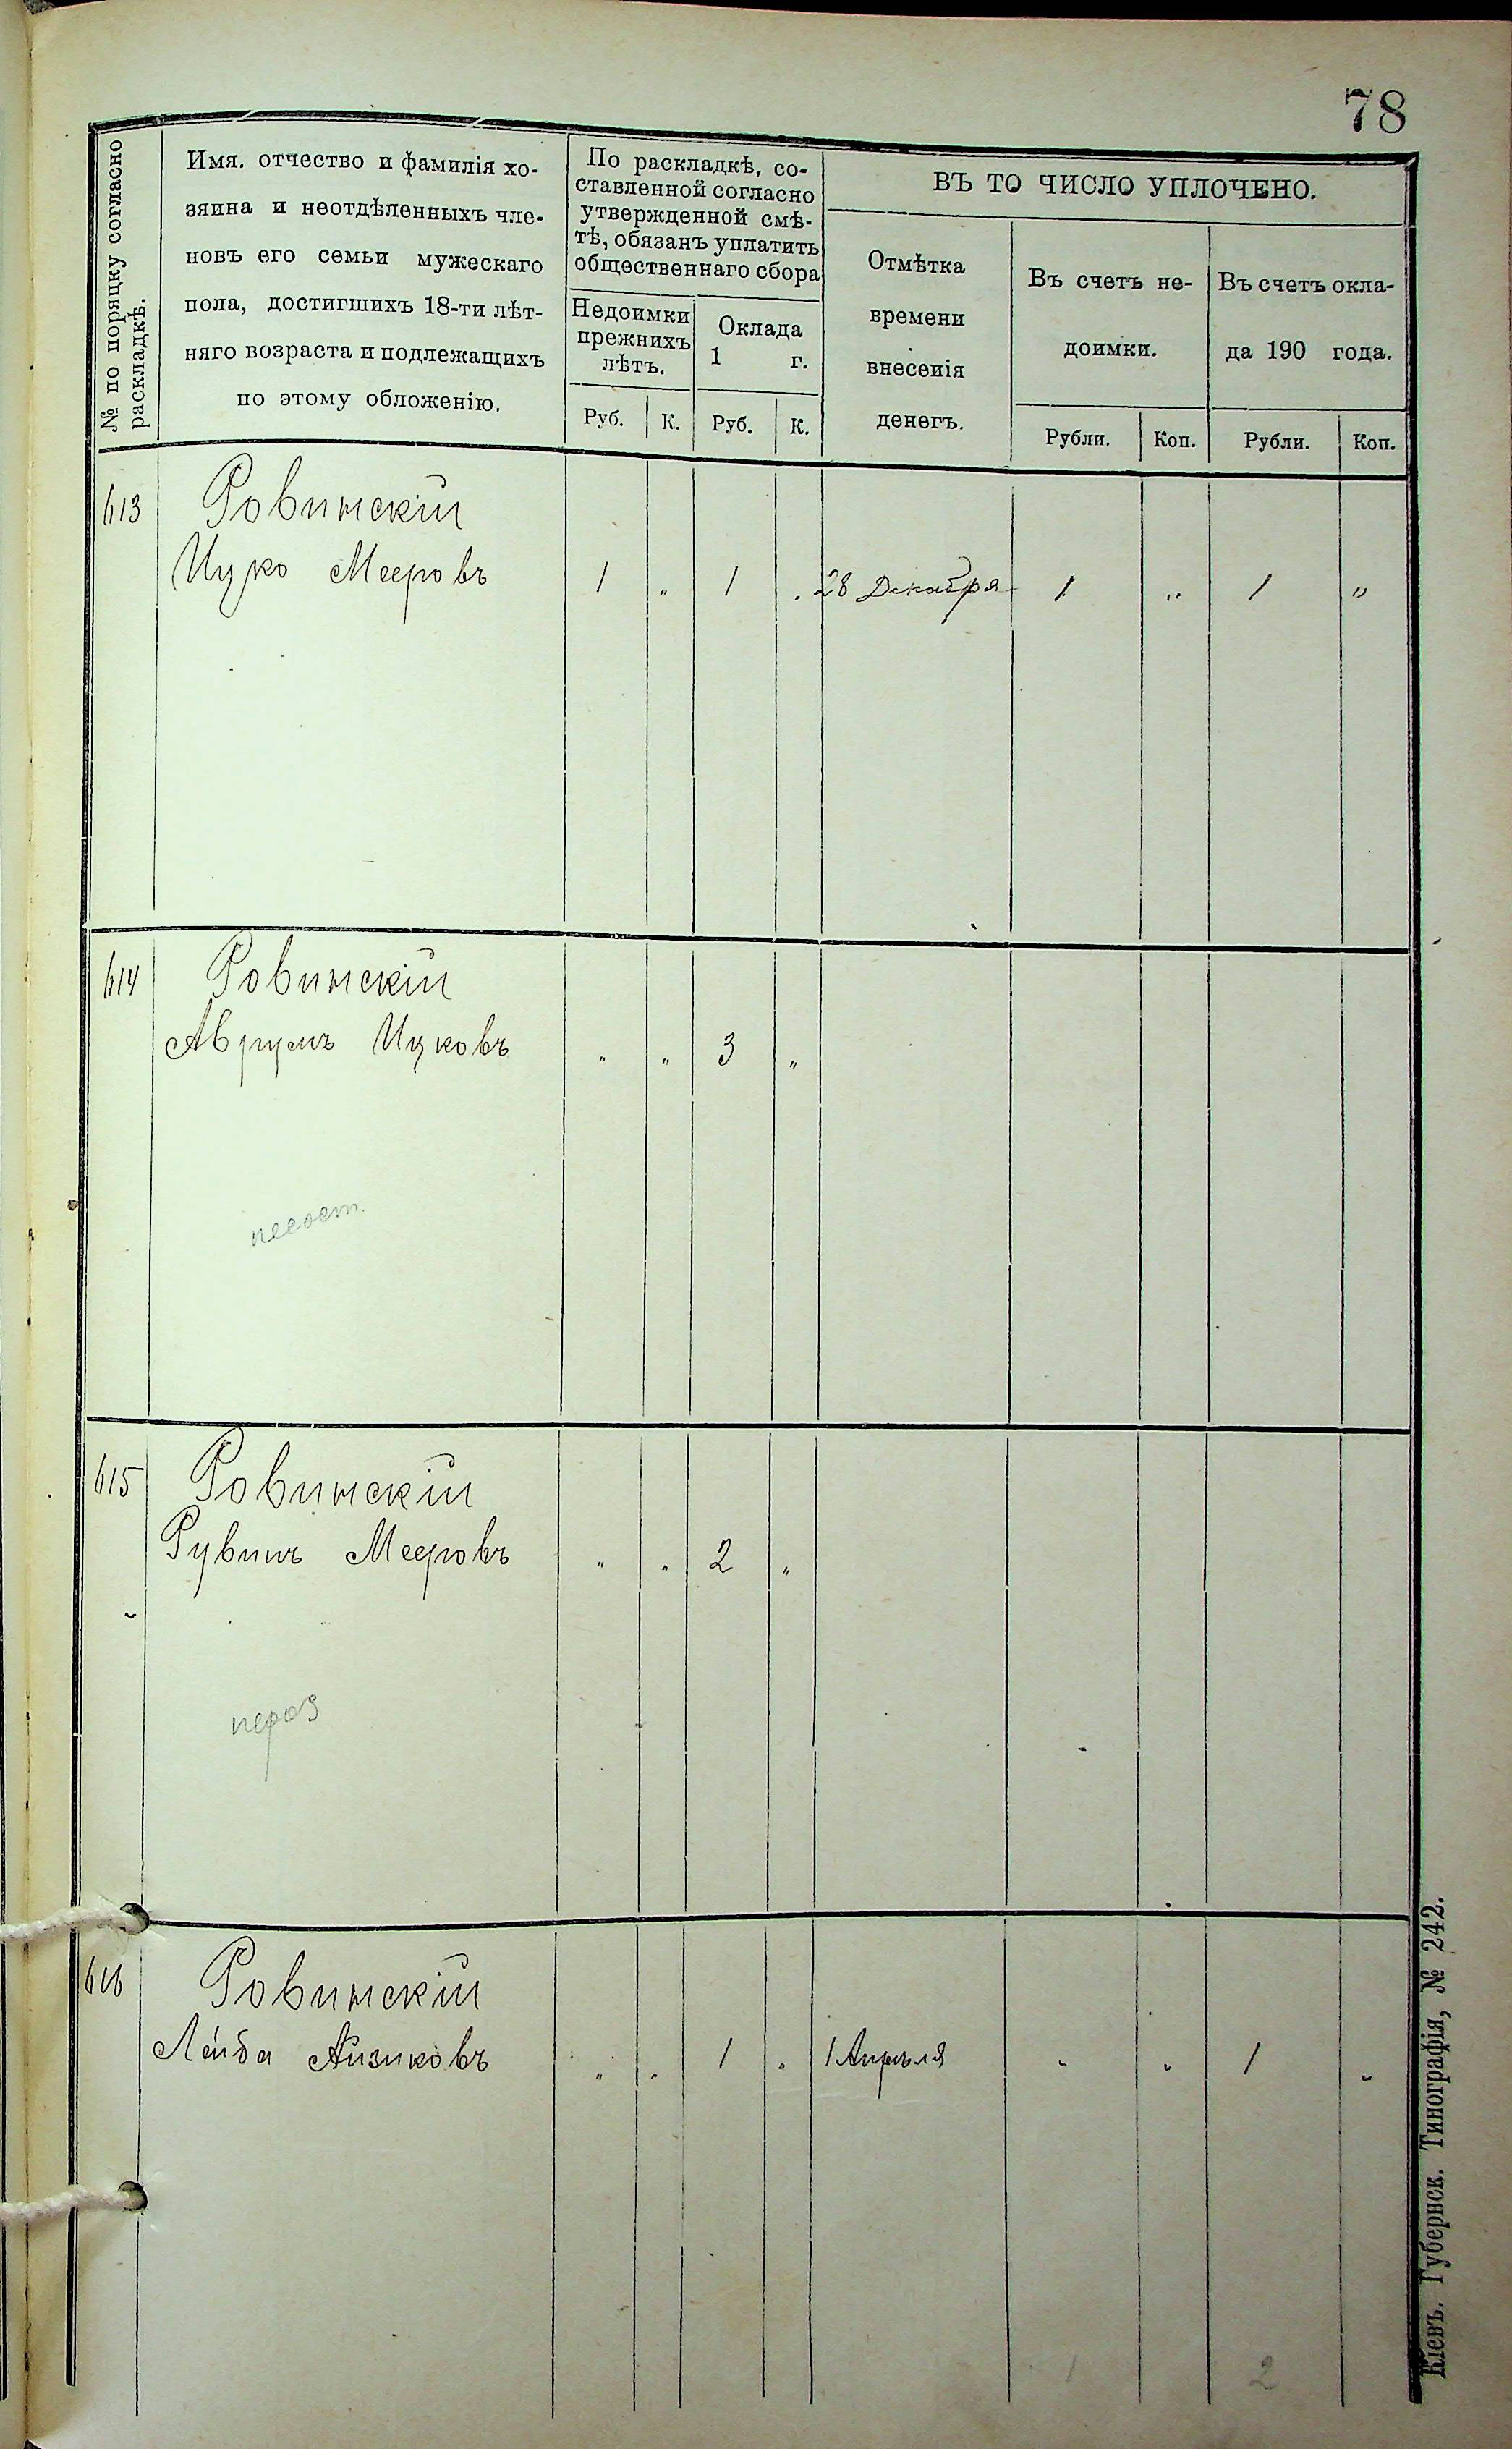 78
№ по поряцку согласно
раскладкѣ.
Имя. отчество и фамилія хо-
зяина и неотдѣленныхъ чле-
новъ его семьи мужескаго
пола, достигшихъ 18-ти лѣт-
няго возраста и подлежащихъ
по этому обложенію.
По раскладкѣ, со-
ставленной согласно
утвержденной смѣ-
тѣ, обязанъ уплатить
общественнаго сбора
Недоимки
прежнихъ
лѣтъ.
Оклада
1 г.
Руб. К. Руб. К.
ВЪ ТО ЧИСЛО УПЛОЧЕНО.
Отмѣтка
времени
внесенія
денегъ.
Въ счетъ не-
доимки.
Въ счетъ окла-
да 190 года.
Рубли. Коп. Рубли. Коп.
613 Ровинскій
Ицко Мееровъ 1 „ 1 . 28 Декабря 1 „ 1 „
614 Ровинскій
Аврумъ Ицковъ „ „ 3 „
несост.
615 Ровинскій
Рувинъ Мееровъ „ „ 2 „
616 Ровинскій
Лейба Айзиковъ „ „ 1 „ 1 Апрѣля „ „ 1 „
1 2
Кіевъ. Губернск. Тинографія, № 242.